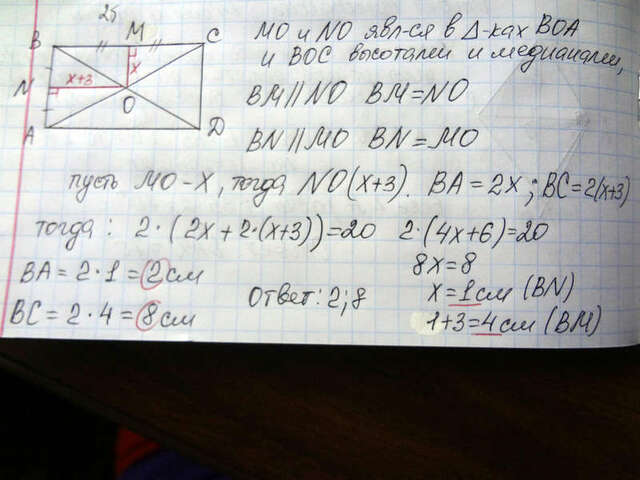 25
B M C
MO и NO явл-ся в Δ-ках BOA
и BOC высотами и медианами,
x+3 x
N O
A D
BM || NO BM = NO
BN || MO BN = MO
пусть MO - x, тогда NO(x+3). BA = 2x; BC = 2(x+3)
тогда: 2·(2x+2·(x+3))=20 2·(4x+6)=20
8x=8
BA = 2·1 = 2 см
x = 1 см (BN)
Ответ: 2; 8
BC = 2·4 = 8 см
1+3=4 см (BM)